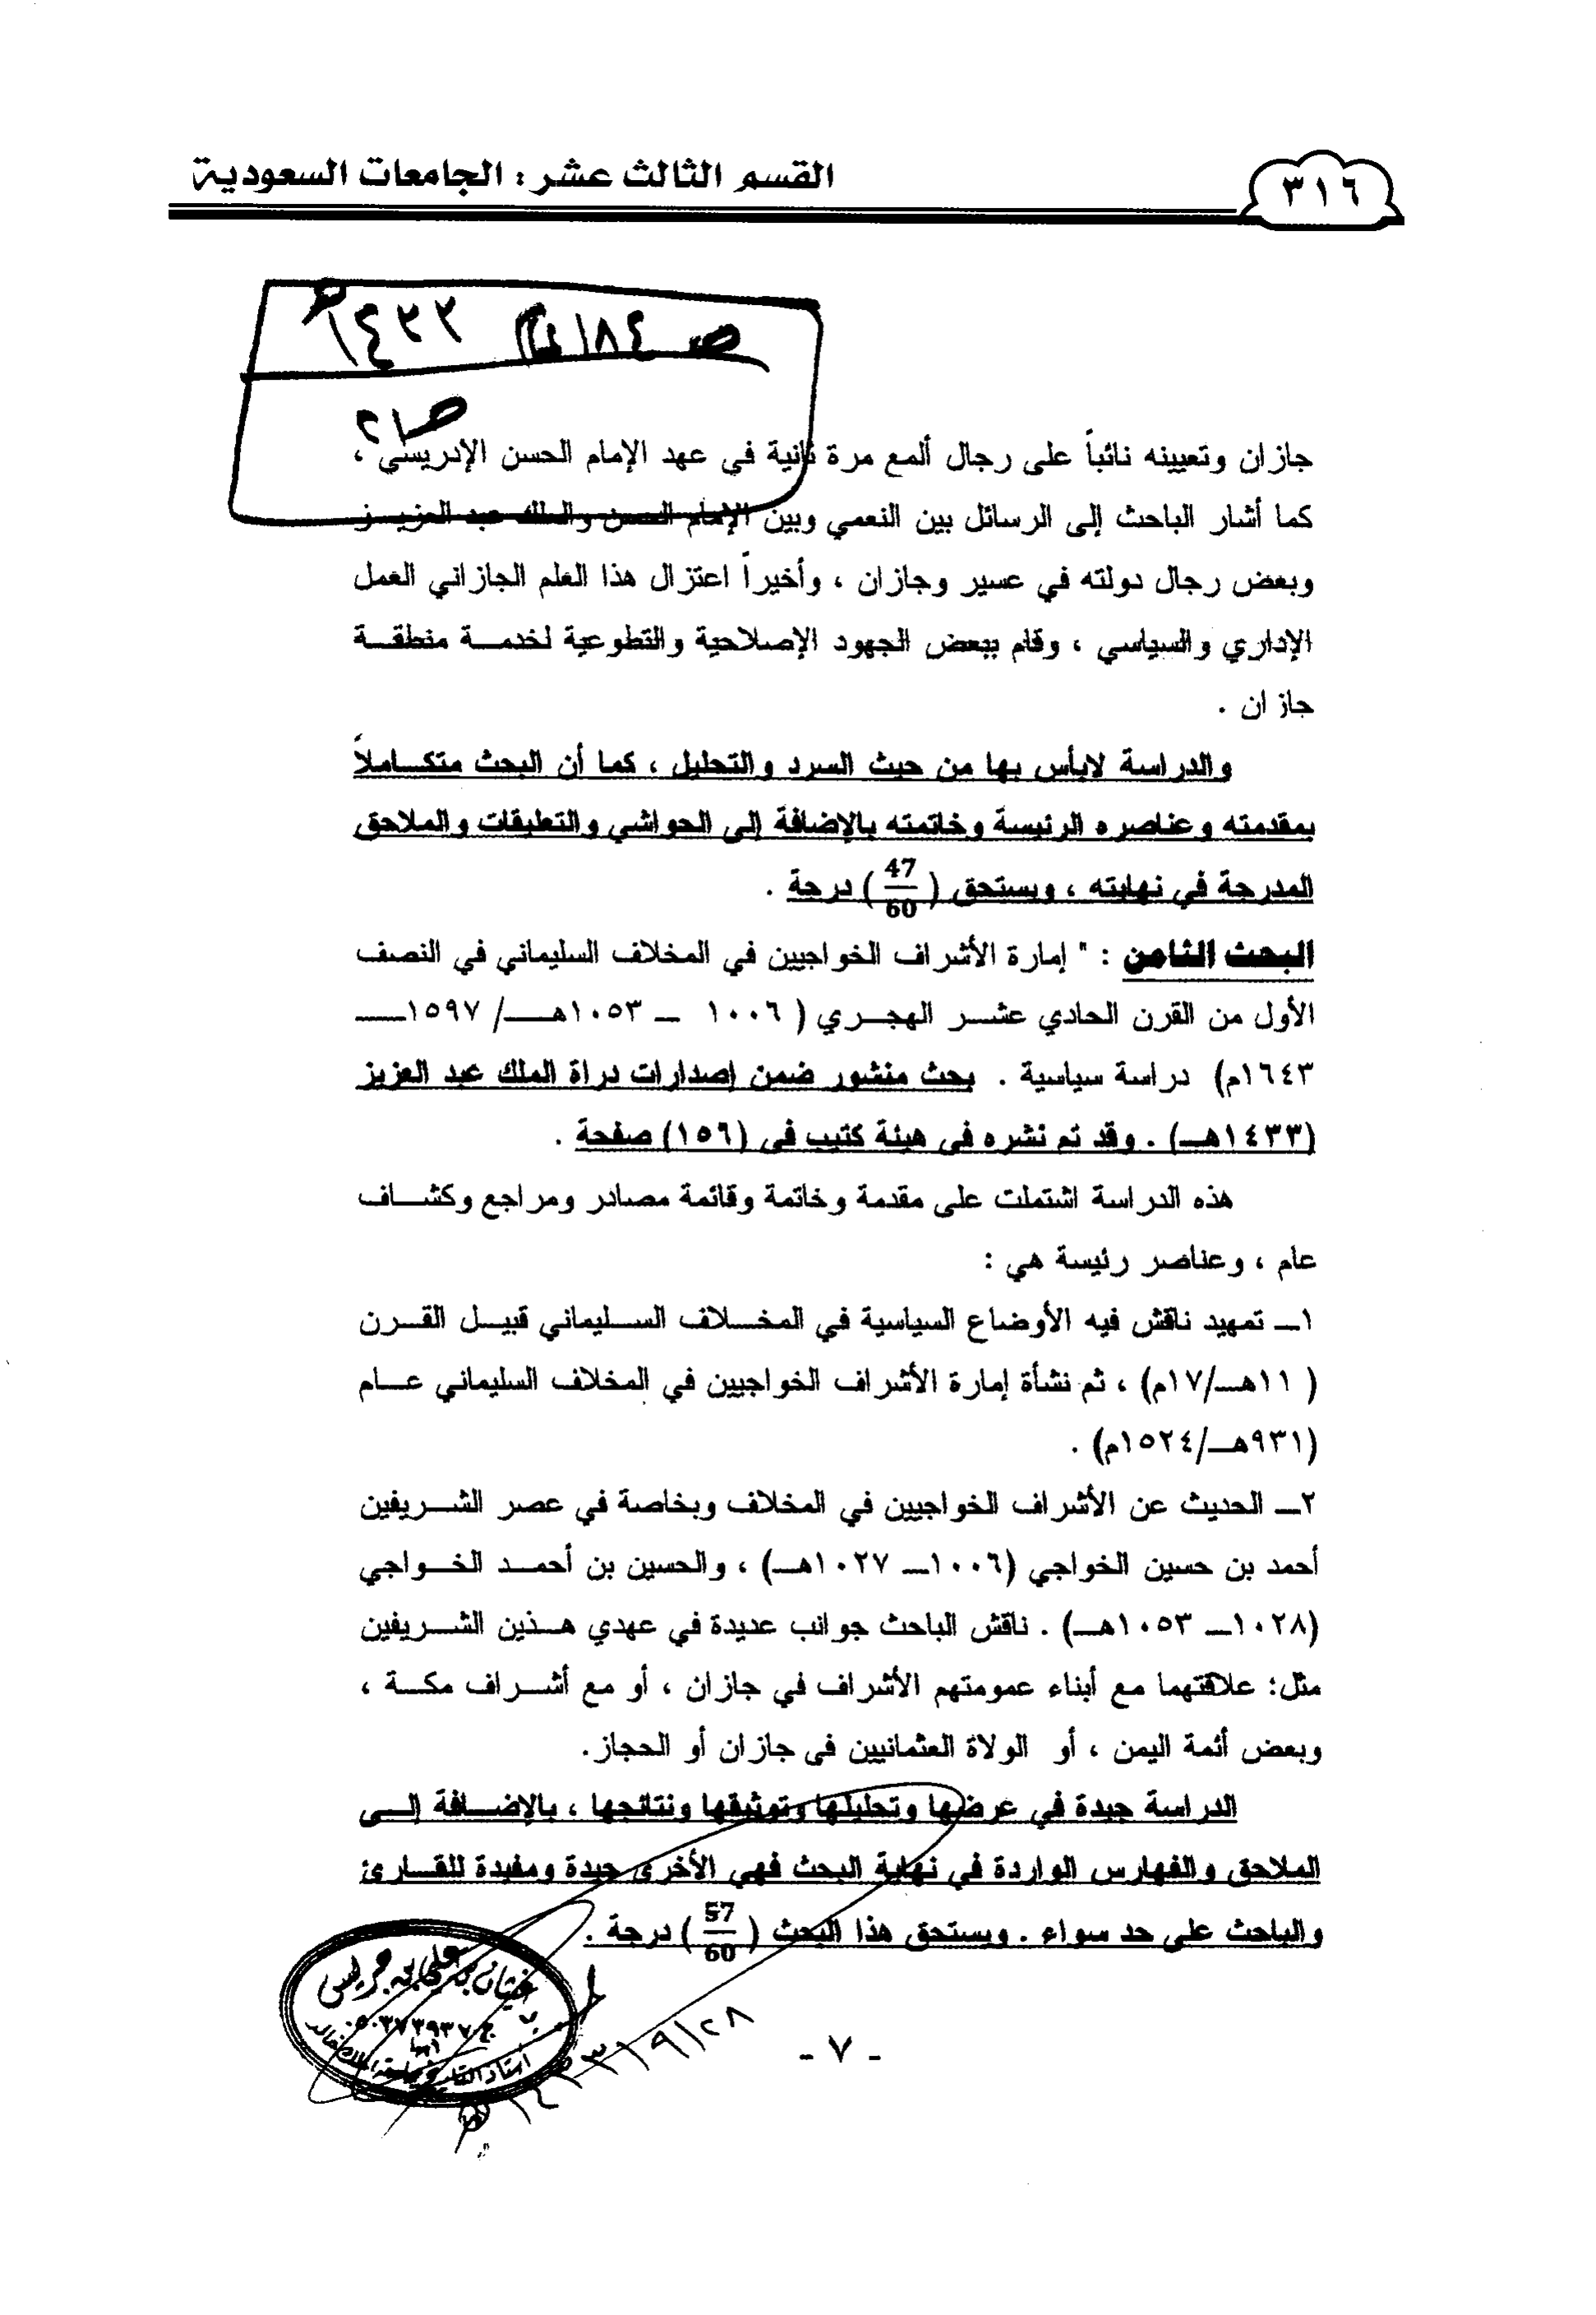 القسم الثالث عشر : الجامعات السعودية
٣١٦
ص ١٨٤
١٤٣٣هـ
ص ١٢
جازان وتعيينه نائباً على رجال ألمع مرة ثانية في عهد الإمام الحسن الإدريسي ،
كما أشار الباحث إلى الرسائل بين النعمي وبين الإمام الحسن والملك عبد العزيــز
وبعض رجال دولته في عسير وجازان ، وأخيراً اعتزال هذا العلم الجازاني العمل
الإداري والسياسي ، وقام ببعض الجهود الإصلاحية والتطوعية لخدمـــة منطقـــة
جازان .
والدراسة لابأس بها من حيث السرد والتحليل ، كما أن البحث متكـــاملاً
بمقدمته وعناصره الرئيسة وخاتمته بالإضافة إلى الحواشي والتعليقات والملاحق
المدرجة في نهايته ، ويستحق ( 47/60 ) درجة .
البحث الثامن : " إمارة الأشراف الخواجيين في المخلاف السليماني في النصف
الأول من القرن الحادي عشـــر الهجـــري ( ١٠٠٦ ــ ١٠٥٣هــ/ ١٥٩٧ــ
١٦٤٣م) دراسة سياسية . بحث منشور ضمن إصدارات دراة الملك عبد العزيز
(١٤٣٣هــ) . وقد تم نشره في هيئة كتيب في (١٥٦) صفحة .
هذه الدراسة اشتملت على مقدمة وخاتمة وقائمة مصادر ومراجع وكشـــاف
عام ، وعناصر رئيسة هي :
١ــ تمهيد ناقش فيه الأوضاع السياسية في المخـــلاف الســـليماني قبيـــل القـــرن
( ١١هــ/١٧م) ، ثم نشأة إمارة الأشراف الخواجيين في المخلاف السليماني عـــام
(٩٣١هــ/١٥٢٤م) .
٢ــ الحديث عن الأشراف الخواجيين في المخلاف وبخاصة في عصر الشـــريفين
أحمد بن حسين الخواجي (١٠٠٦ــ ١٠٢٧هــ) ، والحسين بن أحمـــد الخـــواجي
(١٠٢٨ــ ١٠٥٣هــ) . ناقش الباحث جوانب عديدة في عهدي هـــذين الشـــريفين
مثل: علاقتهما مع أبناء عمومتهم الأشراف في جازان ، أو مع أشـــراف مكـــة ،
وبعض أئمة اليمن ، أو الولاة العثمانيين في جازان أو الحجاز.
الدراسة جيدة في عرضها وتحليلها وتوثيقها ونتائجها ، بالإضـــافة إلـــى
الملاحق والفهارس الواردة في نهاية البحث فهي الأخرى جيدة ومفيدة للقـــارئ
والباحث على حد سواء . ويستحق هذا البحث ( 57/60 ) درجة .
غيثان بن علي بن جريس
- ٧ -